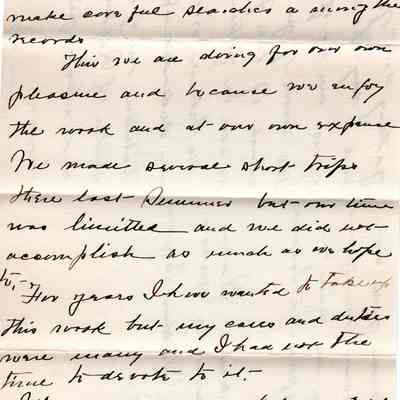 make careful searches among the
records
This we are doing for our own
pleasure and because we enjoy
the work and at our own expense
We made several short trips
there last Summer but our time
was limitted and we did not
accomplish as much as we hope
to,-
For years I have wanted to take up
this work but my cares and duties
were many and I had not the
time to devote to it.-